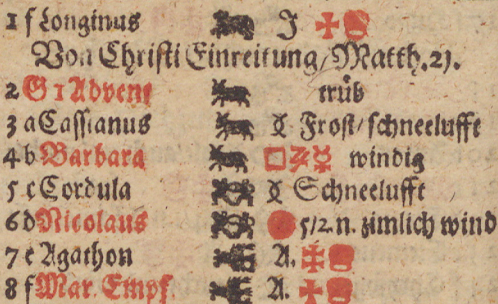 1 f Longinus J
Von Christi Einreitung/Matth.21.
2 G 1 Advent trüb
3 a Cassianus Frost/schneelufft
4 b Barbara □ ☿ windig
5 c Cordula Schneelufft
6 d Nicolaus 5/2.n. zimlich wind
7 e Agathon A.
8 f Mar. Empf. A.